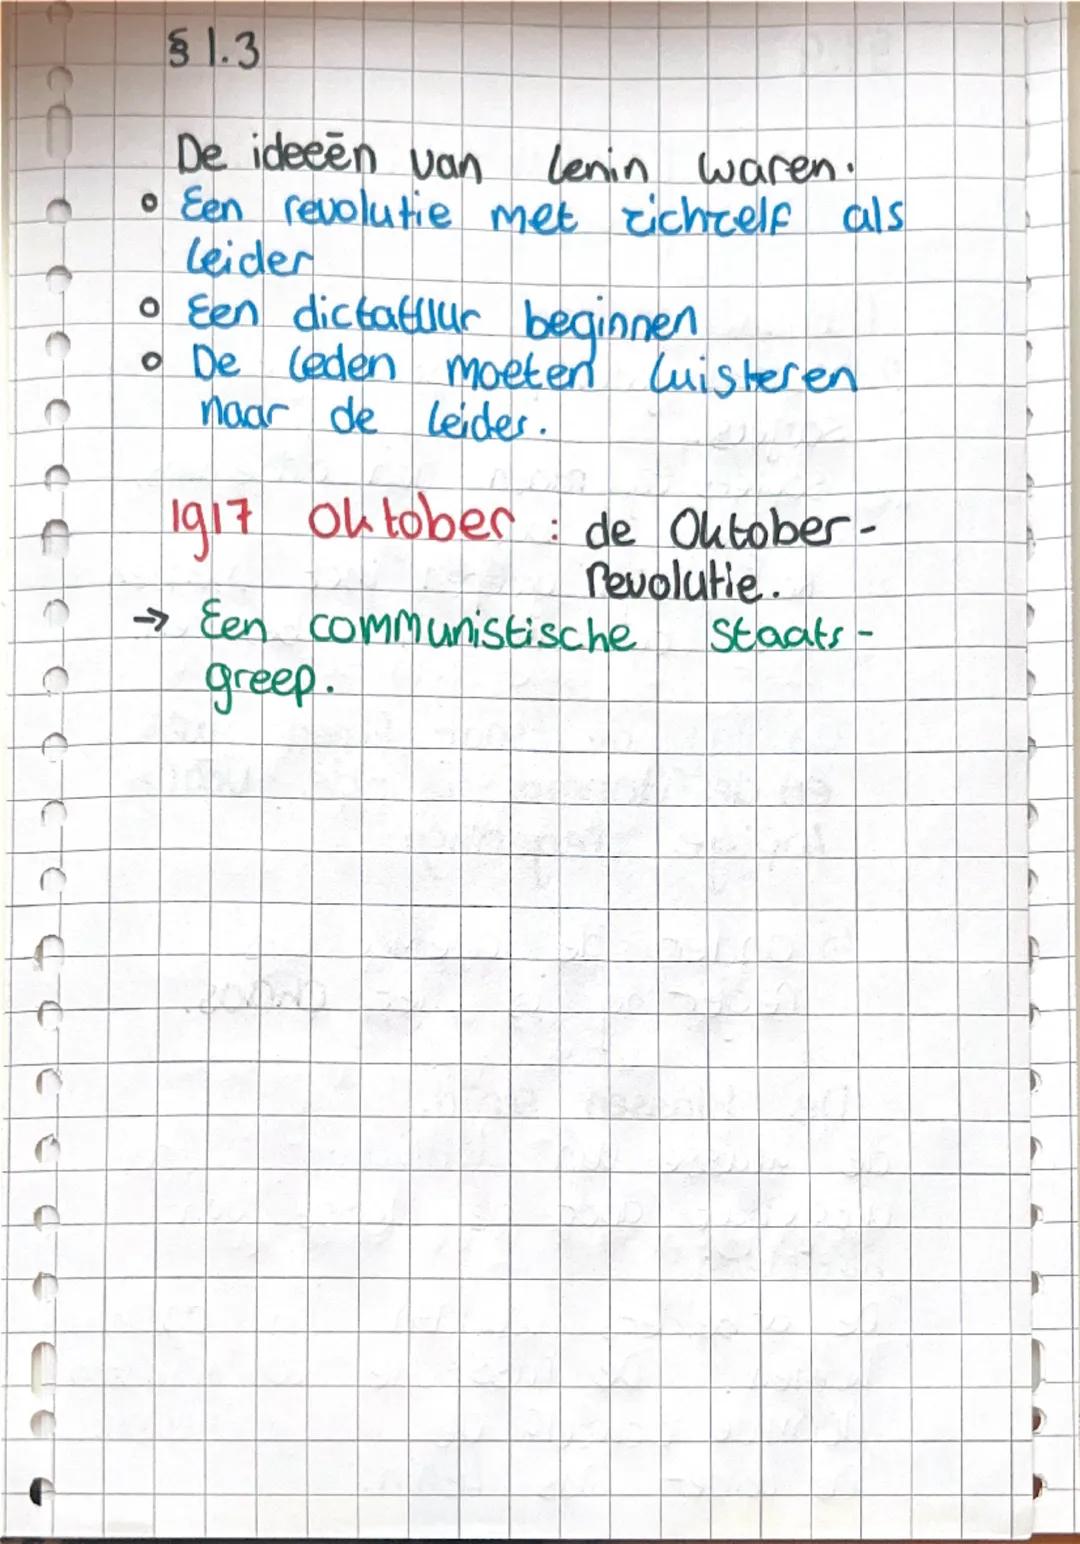 § 1.3
De ideeën van Lenin waren.
Een revolutie met zichzelf als
Leider
Een dictatuur beginnen
De leden moeten luisteren
naar de leider.
1917 Oktober : de Oktober-
revolutie.
→ Een communistische staats-
greep.